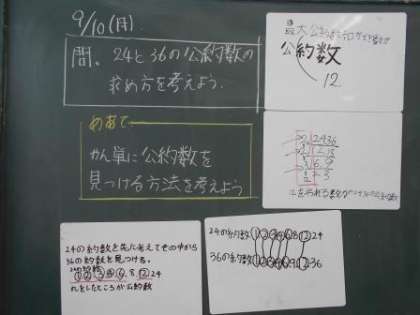 9/10(月)
問. 24と36の公約数の
求め方を考えよう.
めあて
かん単に公約数を
見つける方法を考えよう
最大公約数
公約数
12
2 24 36
2 12 18
3 6 9
2 3
24の約数を先に考えてその中から
36の約数を見つける。
24の約数
①②③④⑥.8.⑫24
24の約数①②③④⑥8⑫24
36の約数①②③④⑥9⑫36